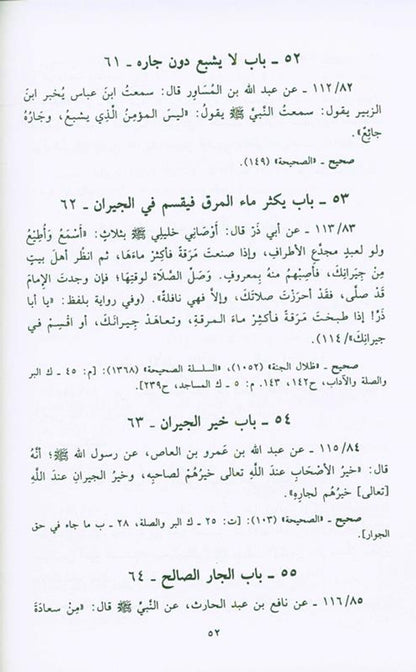 ٥٢ ـ باب لا يشبع دون جاره ـ ٦١
١١٢/٨٢ ـ عن عبد الله بن المُسَاوِر قال: سمعتُ ابنَ عباس يُخبر ابنَ
الزبير يقول: سمعتُ النَّبيَّ ﷺ يقولُ: «ليسَ المؤمِنُ الَّذي يشبعُ، وجَارُهُ
جائِعٌ».
صحيح ـ «الصحيحة» (١٤٩).
٥٣ ـ باب يكثر ماء المرق فيقسم في الجيران ـ ٦٢
١١٣/٨٣ ـ عن أبي ذَرّ قال: أَوْصَاني خليلي ﷺ بثلاثٍ: «أَسْمَعُ وَأُطِيْعُ
ولو لعبدٍ مجدَّعِ الأطرافِ، وإذا صنعتَ مَرَقةً فأكثِرْ ماءَهَا، ثم انظُر أهلَ بيتٍ
مِنْ جِيَرانِكَ، فأصِبْهُم منهُ بِمعروفٍ. وَصَلِّ الصَّلاةَ لوقتِهَا؛ فإن وجدتَ الإمامَ
قَدْ صلَّى، فقَدْ أحرَزْتَ صلاتَكَ، وإلاَّ فهي نافلةٌ». (وفي رواية بلفظ: «يا أبا
ذَرٍّ! إذا طبختَ مَرَقةً فأكثِرْ ماءَ المرقةِ، وتعاهَدْ جِيرانَكَ، أو اقْسِمْ في
جيرانِكَ»/١١٤).
صحيح ـ «ظلال الجنة» (١٠٥٢)، «السلسلة الصحيحة» (١٣٦٨): [م: ٤٥ ـ ك البر
والصلة والآداب، ح١٤٢، ١٤٣. م: ٥ ـ ك المساجد، ح٢٣٩].
٥٤ ـ باب خير الجيران ـ ٦٣
١١٥/٨٤ ـ عن عبد الله بن عَمرو بن العاص، عن رسول الله ﷺ؛ أنَّهُ
قال: «خيرُ الأصْحَابِ عندَ اللَّهِ تعالى خيرُهُمْ لصاحبِه، وخيرُ الجيرانِ عندَ اللَّهِ
[تعالى] خيرُهُم لجارِهِ».
صحيح ـ «الصحيحة» (١٠٣): [ت: ٢٥ ـ ك البر والصلة، ٢٨ ـ ب ما جاء في حق
الجوار].
٥٥ ـ باب الجار الصالح ـ ٦٤
١١٦/٨٥ ـ عن نافع بن عبد الحارث، عن النَّبيِّ ﷺ قال: «مِنْ سعادَةِ
٥٢